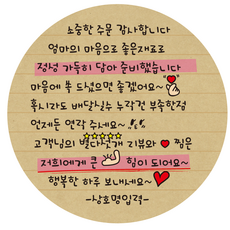 소중한 주문 감사합니다
엄마의 마음으로 좋은재료로
정성 가득히 담아 준비했습니다
마음에 쏙 드셨으면 좋겠어요~
혹시라도 배달실수 누락건 부족한점
언제든 연락 주세요~!!
고객님의 별다섯개 리뷰와 찜은
저희에게 큰 힘이 되어요~
행복한 하루 보내세요~
-상호명입력-